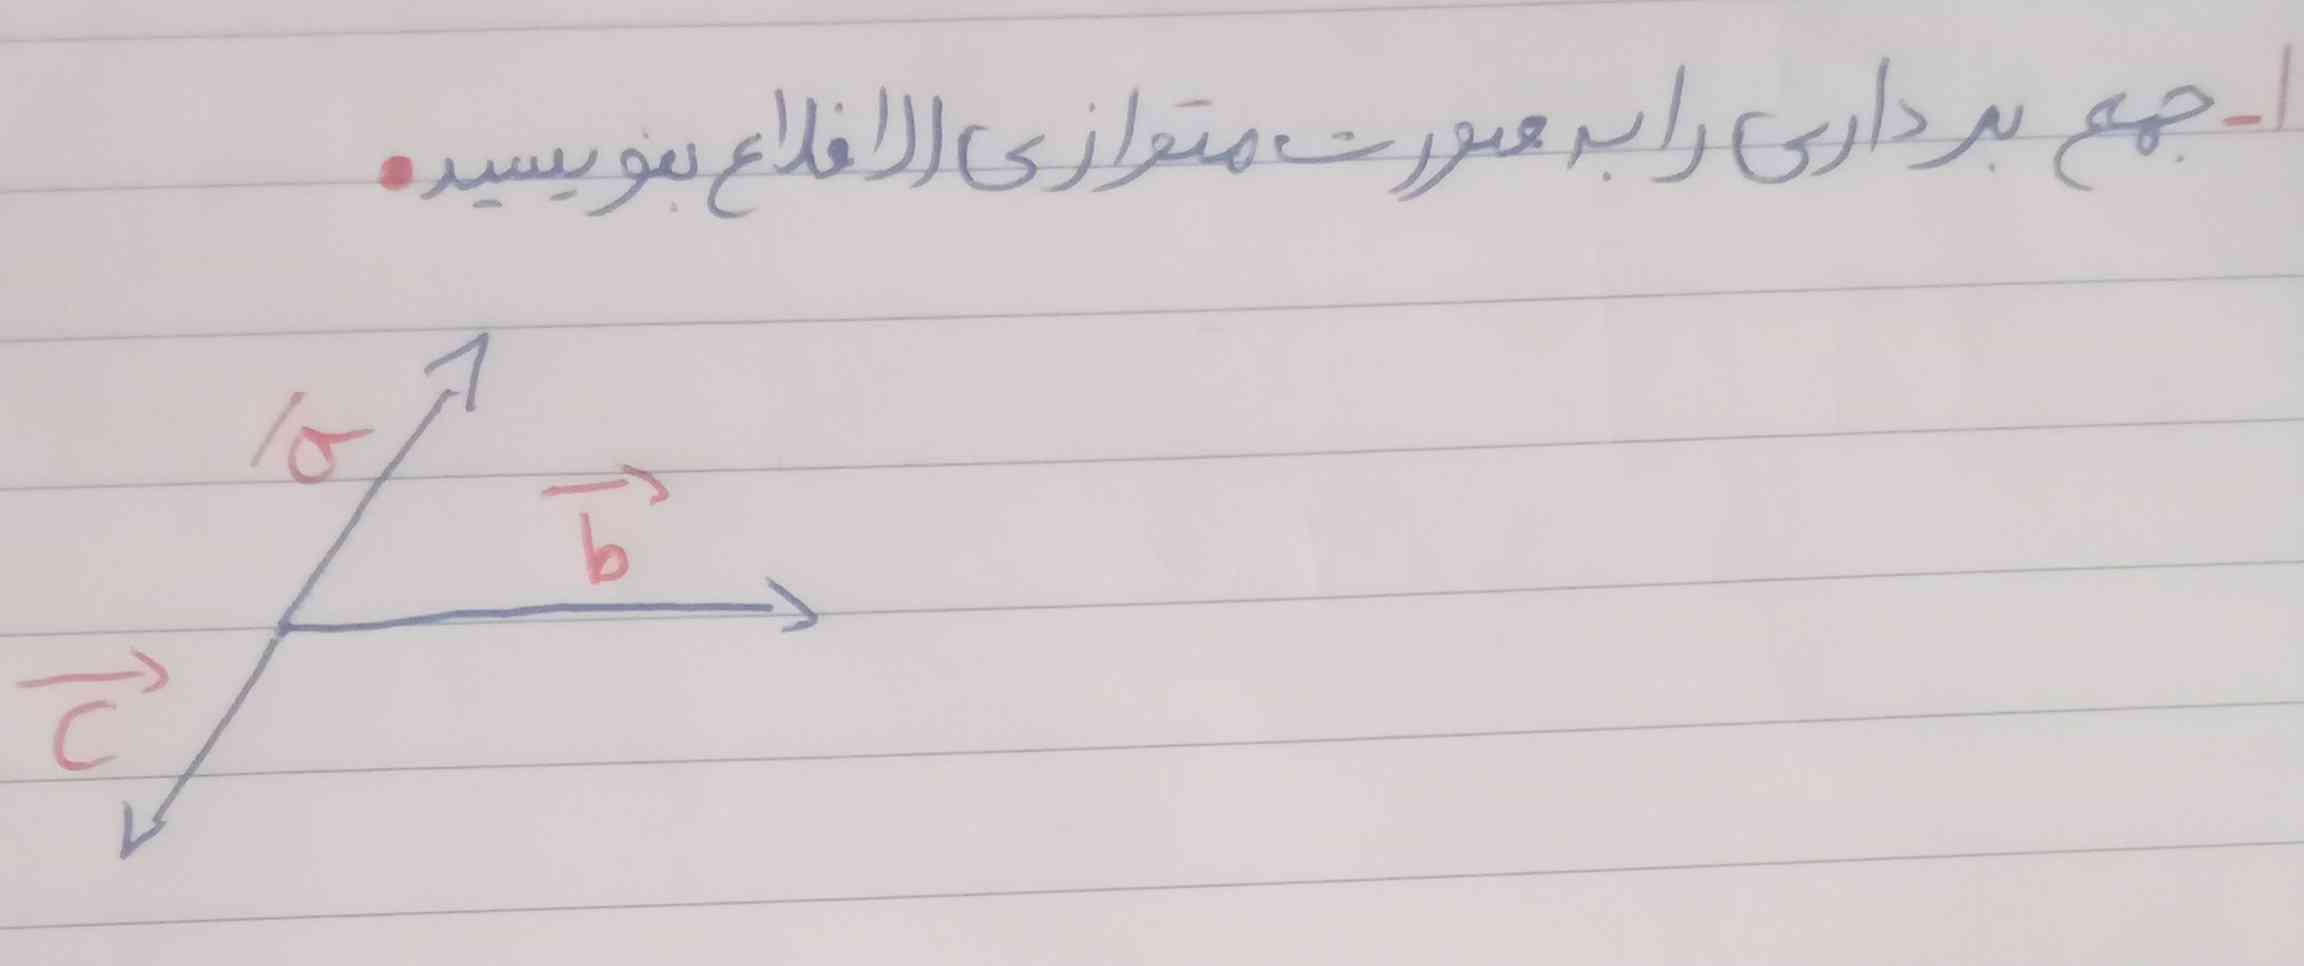 ۱- جمع برداری را به صورت متوازی الاضلاع بنویسید.
a
b
c